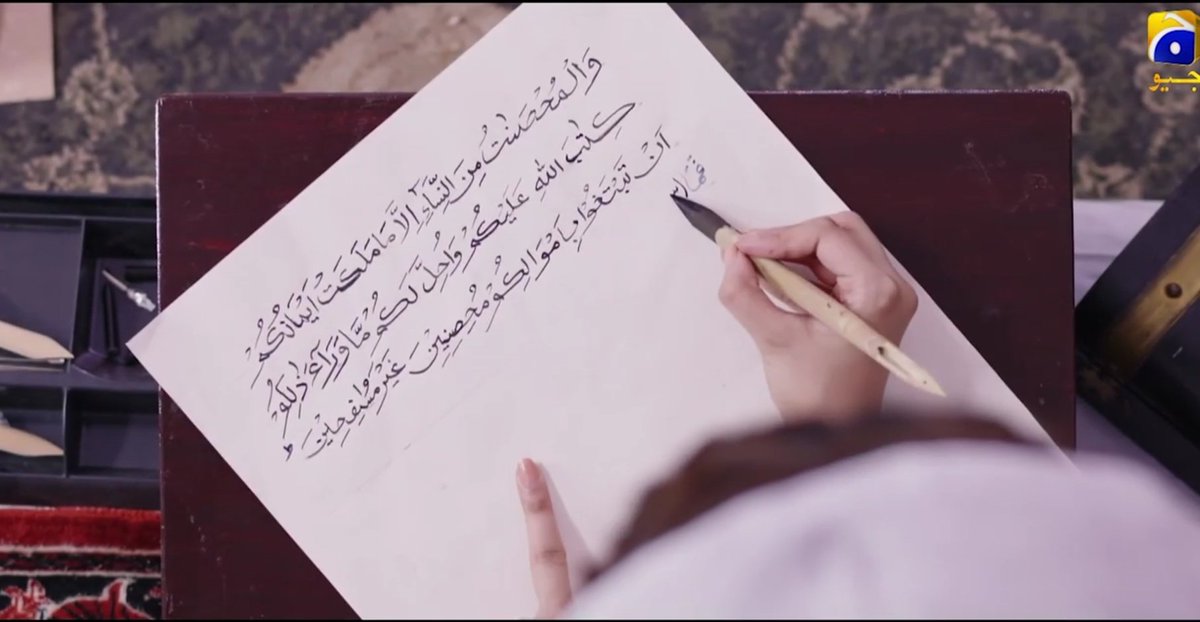 وَالْمُحْصَنٰتُ مِنَ النِّسَآءِ اِلَّا مَا مَلَكَتْ اَيْمَانُكُمْ
كِتٰبَ اللّٰهِ عَلَيْكُمْ وَاُحِلَّ لَكُمْ مَّا وَرَآءَ ذٰلِكُمْ
اَنْ تَبْتَغُوْا بِاَمْوَالِكُمْ مُحْصِنِيْنَ غَيْرَ مُسٰفِحِيْنَ ؕ
فَمَا
جیو